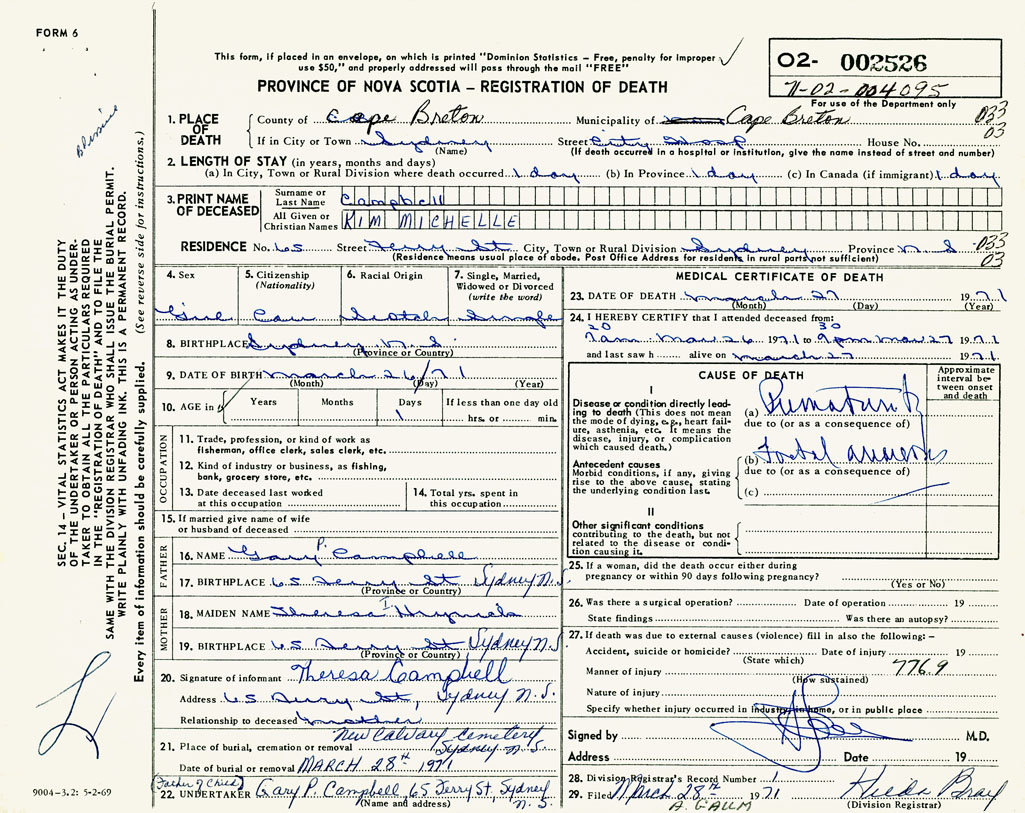 FORM 6
This form, if placed in an envelope, on which is printed "Dominion Statistics – Free, penalty for improper
use $50," and properly addressed will pass through the mail "FREE"
PROVINCE OF NOVA SCOTIA – REGISTRATION OF DEATH
02- 002526
71-02-004095
For use of the Department only
1. PLACE OF DEATH
County of Cape Breton Municipality of Cape Breton 033
If in City or Town Sydney Street City Hosp House No. 03
(Name) (If death occurred in a hospital or institution, give the name instead of street and number)
2. LENGTH OF STAY (in years, months and days)
(a) In City, Town or Rural Division where death occurred 1 day (b) In Province 1 day (c) In Canada (if immigrant) 1 day
3. PRINT NAME OF DECEASED
Surname or Last Name Campbell
All Given or Christian Names KIM MICHELLE
RESIDENCE No. 65 Street Terry St City, Town or Rural Division Sydney Province N. S 033
(Residence means usual place of abode. Post Office Address for residents in rural parts not sufficient) 03
4. Sex
Girl
5. Citizenship
(Nationality)
Can
6. Racial Origin
Scotch
7. Single, Married,
Widowed or Divorced
(write the word)
Single
8. BIRTHPLACE Sydney N. S
(Province or Country)
9. DATE OF BIRTH March 26/71
(Month) (Day) (Year)
10. AGE in
Years Months Days If less than one day old
1 hrs. or min.
OCCUPATION
11. Trade, profession, or kind of work as
fisherman, office clerk, sales clerk, etc.
12. Kind of industry or business, as fishing,
bank, grocery store, etc.
13. Date deceased last worked
at this occupation
14. Total yrs. spent in
this occupation
15. If married give name of wife
or husband of deceased
FATHER
16. NAME Gary P. Campbell
17. BIRTHPLACE 65 Terry St Sydney N. S.
(Province or Country)
MOTHER
18. MAIDEN NAME Theresa I
19. BIRTHPLACE 65 Terry St Sydney N. S
(Province or Country)
20. Signature of informant Theresa Campbell
Address 65 Terry St, Sydney N. S.
Relationship to deceased Mother
New Calvary Cemetery
21. Place of burial, cremation or removal Sydney N. S.
Date of burial or removal MARCH 28th 1971
(Father of Child)
22. UNDERTAKER Gary P. Campbell, 65 Terry St, Sydney
(Name and address) N. S.
MEDICAL CERTIFICATE OF DEATH
23. DATE OF DEATH March 27 1971
(Month) (Day) (Year)
24. I HEREBY CERTIFY that I attended deceased from:
20 30
7am Mar 26 1971 to 9pm Mar 27 1971
and last saw h alive on March 27 1971
CAUSE OF DEATH
Approximate
interval be-
tween onset
and death
I
Disease or condition directly lead-
ing to death (This does not mean
the mode of dying, e.g., heart fail-
ure, asthenia, etc. It means the
disease, injury, or complication
which caused death.)
(a) Prematurity
due to (or as a consequence of)
Antecedent causes
Morbid conditions, if any, giving
rise to the above cause, stating
the underlying condition last.
(b) Foetal anoxia
due to (or as a consequence of)
(c)
II
Other significant conditions
contributing to the death, but not
related to the disease or condi-
tion causing it.
25. If a woman, did the death occur either during
pregnancy or within 90 days following pregnancy?
(Yes or No)
26. Was there a surgical operation? Date of operation 19
State findings Was there an autopsy?
27. If death was due to external causes (violence) fill in also the following: –
Accident, suicide or homicide? Date of injury 19
(State which)
Manner of injury 776.9
(How sustained)
Nature of injury
Specify whether injury occurred in industry, in home, or in public place
Signed by M.D.
Address Date 19
28. Division Registrar's Record Number 1
29. Filed March 28th 1971 Hilda Bray
A. GAUM (Division Registrar)
SEC. 14 – VITAL STATISTICS ACT MAKES IT THE DUTY
OF THE UNDERTAKER OR PERSON ACTING AS UNDER-
TAKER TO OBTAIN ALL THE PARTICULARS REQUIRED
IN THE "REGISTRATION OF DEATH" AND TO FILE THE
SAME WITH THE DIVISION REGISTRAR WHO SHALL ISSUE THE BURIAL PERMIT.
WRITE PLAINLY WITH UNFADING INK. THIS IS A PERMANENT RECORD.
Every item of information should be carefully supplied. (See reverse side for instructions.)
9004-3.2: 5-2-69